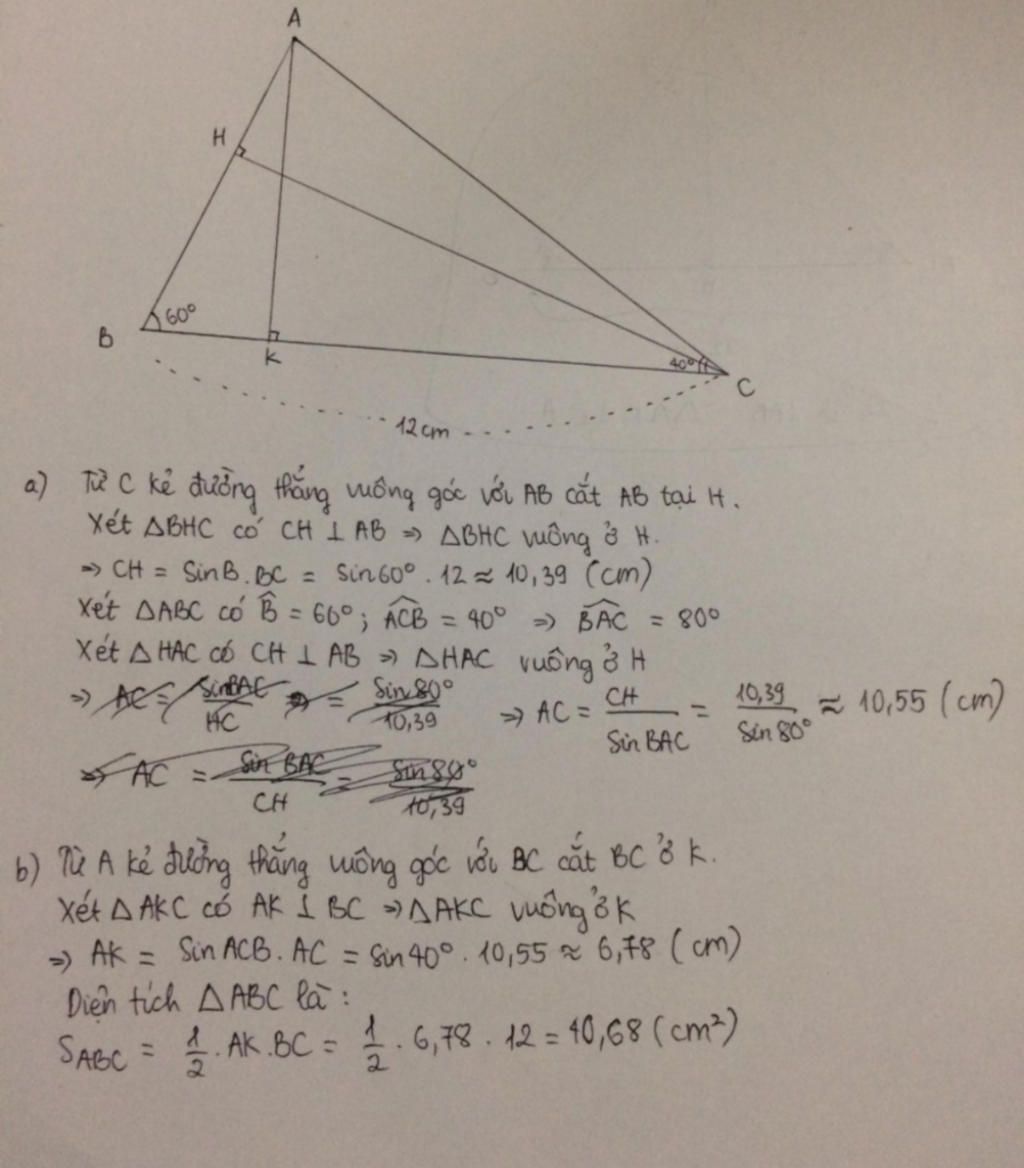 A
H
60°
B
K
40°
C
12cm
a) Từ C kẻ đường thẳng vuông góc với AB cắt AB tại H.
Xét △BHC có CH ⊥ AB ⇒ △BHC vuông ở H.
⇒ CH = SinB.BC = Sin60°.12 ≈ 10,39 (cm)
Xét △ABC có B̂ = 60°; ACB̂ = 40° ⇒ BAĈ = 80°
Xét △HAC có CH ⊥ AB ⇒ △HAC vuông ở H
⇒ AC = SinBAC / HC ⇒ = Sin80° / 10,39 ⇒ AC = CH / Sin BAC = 10,39 / Sin 80° ≈ 10,55 (cm)
⇒ AC = Sin BAC / CH = Sin 80° / 10,39
b) Từ A kẻ đường thẳng vuông góc với BC cắt BC ở K.
Xét △AKC có AK ⊥ BC ⇒ △AKC vuông ở K
⇒ AK = Sin ACB. AC = sin 40°. 10,55 ≈ 6,78 (cm)
Diện tích △ABC là:
S_ABC = 1/2 . AK.BC = 1/2 . 6,78 . 12 = 40,68 (cm²)